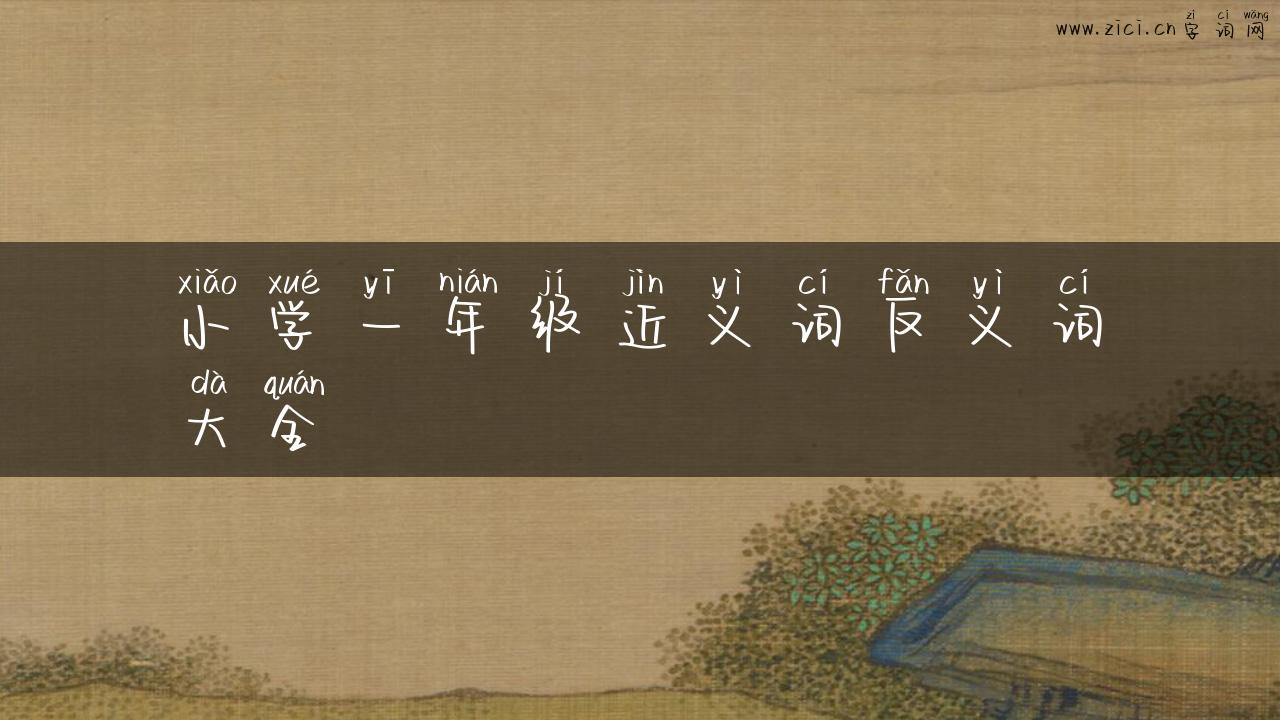 zì cí wǎng
www.zici.cn 字 词 网
xiǎo xué yī nián jí jìn yì cí fǎn yì cí
小 学 一 年 级 近 义 词 反 义 词
dà quán
大 全